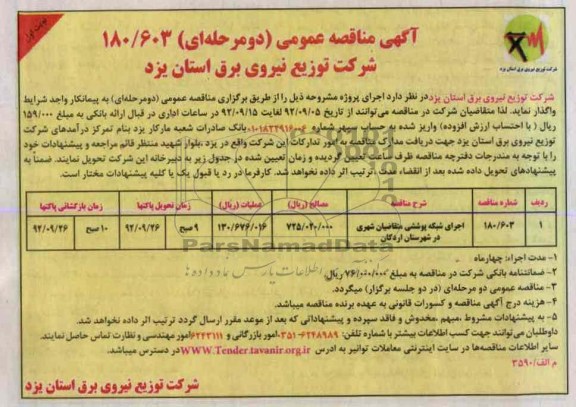 نوبت اول
آگهی مناقصه عمومی (دومرحله‌ای) ۱۸۰/۶۰۳
شرکت توزیع نیروی برق استان یزد
شرکت توزیع نیروی برق استان یزد
شرکت توزیع نیروی برق استان یزد در نظر دارد اجرای پروژه مشروحه ذیل را از طریق برگزاری مناقصه عمومی (دومرحله‌ای) به پیمانکار واجد شرایط
واگذار نماید. لذا متقاضیان شرکت در مناقصه می‌توانند از تاریخ ۹۲/۰۹/۰۵ لغایت ۹۲/۰۹/۱۵ در ساعات اداری در قبال ارائه بانکی به مبلغ ۱۵۹/۰۰۰
ریال ( با احتساب ارزش افزوده) واریز شده به حساب سپهر بانک صادرات شعبه مارکار یزد بنام تمرکز درآمدهای شرکت
توزیع نیروی برق استان یزد جهت دریافت مدارک مناقصه به امور تدارکات این شرکت واقع در یزد ،بلوار شهید منتظر قائم مراجعه و پیشنهادات خود
را با توجه به مندرجات دفترچه مناقصه ظرف مدت تعیین گردیده و زمان تعیین شده در جدول زیر به دبیرخانه این شرکت تحویل نمایند. ضمناً به
پیشنهادهای تحویل داده شده بعد از انقضاء مدت ،ترتیب اثر داده نخواهد شد. کارفرما در رد یا قبول یک یا کلیه پیشنهادات مختار است.
ردیف شماره مناقصه شرح مناقصه مصالح (ریال) عملیات (ریال) زمان تحویل پاکتها زمان بازگشائی پاکتها
۱ ۱۸۰/۶۰۳ اجرای شبکه پوششی متقاضیان شهری در شهرستان اردکان ۷۲۵/۰۲۰/۰۰۰ ۱۳۰/۶۷۶/۰۱۶ ۹ صبح ۹۲/۰۹/۲۶ ۱۰ صبح ۹۲/۰۹/۲۶
ParsNamadData
۱- مدت اجراء: چهارماه
۲- ضمانتنامه بانکی شرکت در مناقصه به مبلغ ۷۶/۰۰۰/۰۰۰ ریال
۳- مناقصه عمومی دو مرحله‌ای (در دو جلسه برگزار) میگردد.
۴- هزینه درج آگهی مناقصه و کسورات قانونی به عهده برنده مناقصه میباشد.
۵- به پیشنهادات مشروط ،مبهم ،مخدوش و فاقد سپرده و پیشنهاداتی که بعد از موعد مقرر ارسال گردد ترتیب اثر داده نخواهد شد.
داوطلبان می‌توانند جهت کسب اطلاعات بیشتر با شماره تلفن: ۶۲۴۸۹۸۹-۰۳۵۱ امور بازرگانی و ۶۲۴۳۱۱۱ امور مهندسی و نظارت تماس حاصل نمایند.
سایر اطلاعات مناقصه‌ها در سایت اینترنتی معاملات توانیر به آدرس WWW.Tender.tavanir.org.ir در دسترس میباشد.
م الف/۳۵۹۰
شرکت توزیع نیروی برق استان یزد